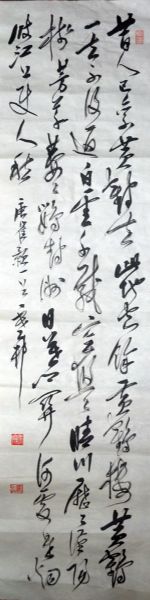 昔人已乘黄鶴去此地空餘黄鶴樓黄鶴
一去不復返白雲千載空悠々晴川歷々漢陽
樹芳草萋々鸚鵡洲日暮鄉關何處是烟
波江上使人愁 唐崔顥